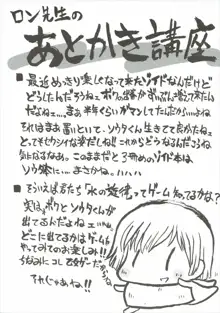 ロン先生の
あとがき講座
■最近めっきり楽しくなって来たゾイドなんだけど
どうしたんだろうねェ、ボクの出番がずいぶん増えて来たん
だよねェ…。まあ半年くらいガマンしてたんだから……ねェ
それはまぁ置いといて、ソウタくん生きてて良かったねェ。
とってもウレシイな楽だし!!これからどうなるんだろうね
気になるなあ。このままだと3冊めのゾイド本は
ソウ
……まさかねェ。ハハハ
■そういえば君たち「水の旋律」ってゲーム知ってるかな?
実は、ボクとソウタくんが
出てるんだよねェ
どこに出てるかはゲームを
やってみてのお楽しみ!!
ちなみにコレ乙女ゲーだから
それじゃあねェ!!